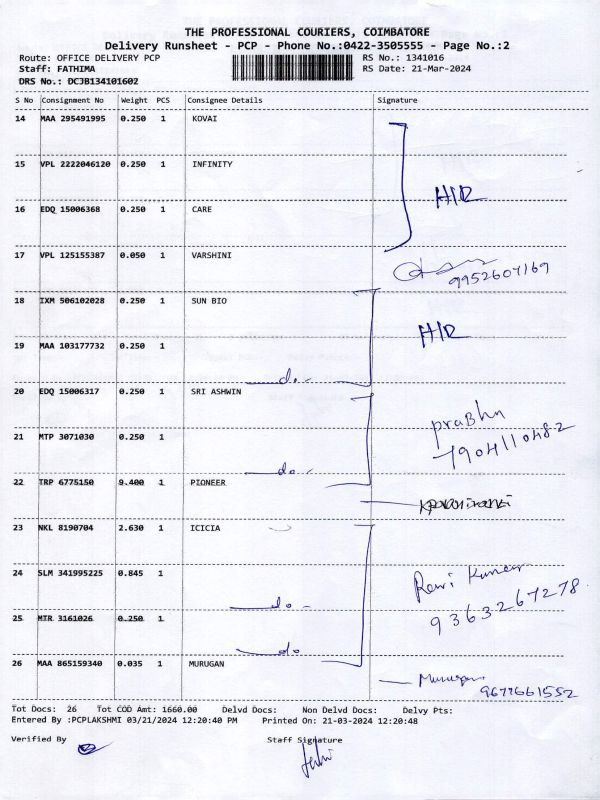 THE PROFESSIONAL COURIERS, COIMBATORE
Delivery Runsheet - PCP - Phone No.:0422-3505555 - Page No.:2
Route: OFFICE DELIVERY PCP RS No.: 1341016
Staff: FATHIMA RS Date: 21-Mar-2024
DRS No.: DCJB134101602
S No Consignment No Weight PCS Consignee Details Signature
14 MAA 295491995 0.250 1 KOVAI
15 VPL 2222046120 0.250 1 INFINITY
H/R
16 EDQ 15006368 0.250 1 CARE
17 VPL 125155387 0.050 1 VARSHINI
9952607169
18 IXM 506102028 0.250 1 SUN BIO
H/R
19 MAA 103177732 0.250 1
do -
20 EDQ 15006317 0.250 1 SRI ASHWIN
Prabhu
7904110482
21 MTP 3071030 0.250 1
do -
22 TRP 6775150 9.400 1 PIONEER
23 NKL 8190704 2.630 1 ICICIA
24 SLM 341995225 0.845 1
Ravi Kumar
9363267278
do -
25 MTR 3161026 0.250 1
do
26 MAA 865159340 0.035 1 MURUGAN
Murugan
9677661552
Tot Docs: 26 Tot COD Amt: 1660.00 Delvd Docs: Non Delvd Docs: Delvy Pts:
Entered By :PCPLAKSHMI 03/21/2024 12:20:40 PM Printed On: 21-03-2024 12:20:48
Verified By Staff Signature